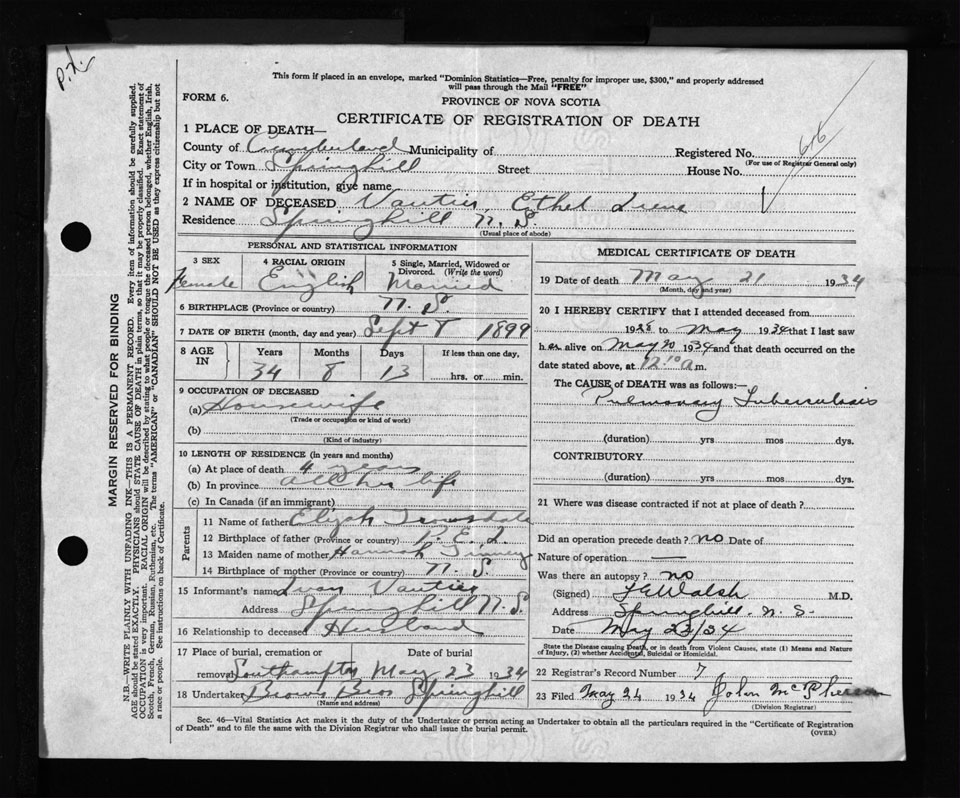 P.X.
This form if placed in an envelope, marked "Dominion Statistics—Free, penalty for improper use, $300," and properly addressed
will pass through the Mail "FREE"
FORM 6.
PROVINCE OF NOVA SCOTIA
CERTIFICATE OF REGISTRATION OF DEATH
616
1 PLACE OF DEATH—
County of Cumberland Municipality of Registered No.
(For use of Registrar General only)
City or Town Springhill Street House No.
If in hospital or institution, give name
2 NAME OF DECEASED Vautier, Ethel
Residence Springhill N. S.
(Usual place of abode)
PERSONAL AND STATISTICAL INFORMATION
3 SEX 4 RACIAL ORIGIN 5 Single, Married, Widowed or Divorced. (Write the word)
Female English Married
6 BIRTHPLACE (Province or country) N. S.
7 DATE OF BIRTH (month, day and year) Sept 8 1899
8 AGE IN Years Months Days If less than one day,
34 8 13 hrs. or min.
9 OCCUPATION OF DECEASED
(a) Housewife
(Trade or occupation or kind of work)
(b)
(Kind of industry)
10 LENGTH OF RESIDENCE (in years and months)
(a) At place of death 4 years
(b) In province all her life
(c) In Canada (if an immigrant)
Parents
11 Name of father Elijah
12 Birthplace of father (Province or country) P. E. I.
13 Maiden name of mother Hannah
14 Birthplace of mother (Province or country) N. S.
15 Informant's name Vautier
Address Springhill N. S.
16 Relationship to deceased Husband
17 Place of burial, cremation or removal Date of burial
Southampton May 23 1934
18 Undertaker Brown Bros Springhill
(Name and address)
MEDICAL CERTIFICATE OF DEATH
19 Date of death May 21 1934
(Month, day and year)
20 I HEREBY CERTIFY that I attended deceased from
1928 to May 1934 that I last saw
her alive on May 20 1934 and that death occurred on the
date stated above, at 12 10 a m.
The CAUSE of DEATH was as follows:—
Pulmonary Tuberculosis
(duration) yrs mos dys.
CONTRIBUTORY
(duration) yrs mos dys.
21 Where was disease contracted if not at place of death?
Did an operation precede death? no Date of
Nature of operation —
Was there an autopsy? no
(Signed) Walsh M.D.
Address Springhill. N. S.
Date May 23/34
State the Disease causing Death, or in death from Violent Causes, state (1) Means and Nature
of Injury, (2) whether Accidental, Suicidal or Homicidal.
22 Registrar's Record Number 7
23 Filed May 24 1934 John McPherson
(Division Registrar)
Sec. 46—Vital Statistics Act makes it the duty of the Undertaker or person acting as Undertaker to obtain all the particulars required in the "Certificate of Registration
of Death" and to file the same with the Division Registrar who shall issue the burial permit.
(OVER)
MARGIN RESERVED FOR BINDING
N.B.—WRITE PLAINLY WITH UNFADING INK—THIS IS A PERMANENT RECORD. Every item of information should be carefully supplied.
AGE should be stated EXACTLY. PHYSICIANS should STATE CAUSE OF DEATH in plain terms, so that it may be properly classified. Exact statement of
OCCUPATION is very important. RACIAL ORIGIN will be described by stating to what people or tongue the deceased person belonged, whether English, Irish,
Scotch, French, German, Russian, Ruthenian, etc. The terms "AMERICAN" or "CANADIAN" SHOULD NOT BE USED as they express citizenship but not
a race or people. See instructions on back of Certificate.